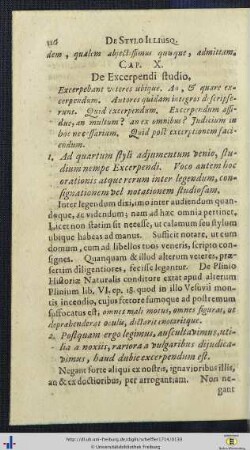 DE STYLO ILLIUSQ.
dem, qualem abjectissimus quisque, admittam.
CAP. X.
De Excerpendi studio.
Excerpebant veteres ubique. An, & quare excerpendum.
Autores quidam integros descripserunt.
Quid excerpendum. Excerpendum assidue,
an multum? an ex omnibus? Judicium in
hoc necessarium. Quid post excerptionem faciendum.
1. Ad quartum styli adjumentum venio, studium
nempe Excerpendi. Voco autem hoc
orationis atque rerum inter legendum, consignationem
vel notationem studiosam.
Inter legendum dixi, imo inter audiendum quandoque,
& videndum; nam ad hæc omnia pertinet,
Licet non statim sit necesse, ut calamum seu stylum
ubique habeas ad manus. Sufficit notare, ut cum
domum, cum ad libellos tuos veneris, scripto consignes.
Quanquam & illud alterum veteres, præsertim
diligentiores, fecisse legantur. De Plinio
Historiæ Naturalis conditore extat apud alterum
Plinium lib. VI. ep. 16. quod in illo Vesuvii montis
incendio, cujus fœtore fumoque ad postremum
suffocatus est, omnes mali motus, omnes figuras, ut
deprehenderat oculis, dictarit enotaritque.
2. Postquam ergo legimus, auscultavimus, utilia
a noxiis, rariora a vulgaribus dijudicavimus,
haud dubie excerpendum est.
Negant forte aliqui ex nostris, ignavioribus illis,
an & ex doctioribus, per arrogantiam. Non negant
http://dl.ub.uni-freiburg.de/diglit/scheffer1714/0138
© Universitätsbibliothek Freiburg